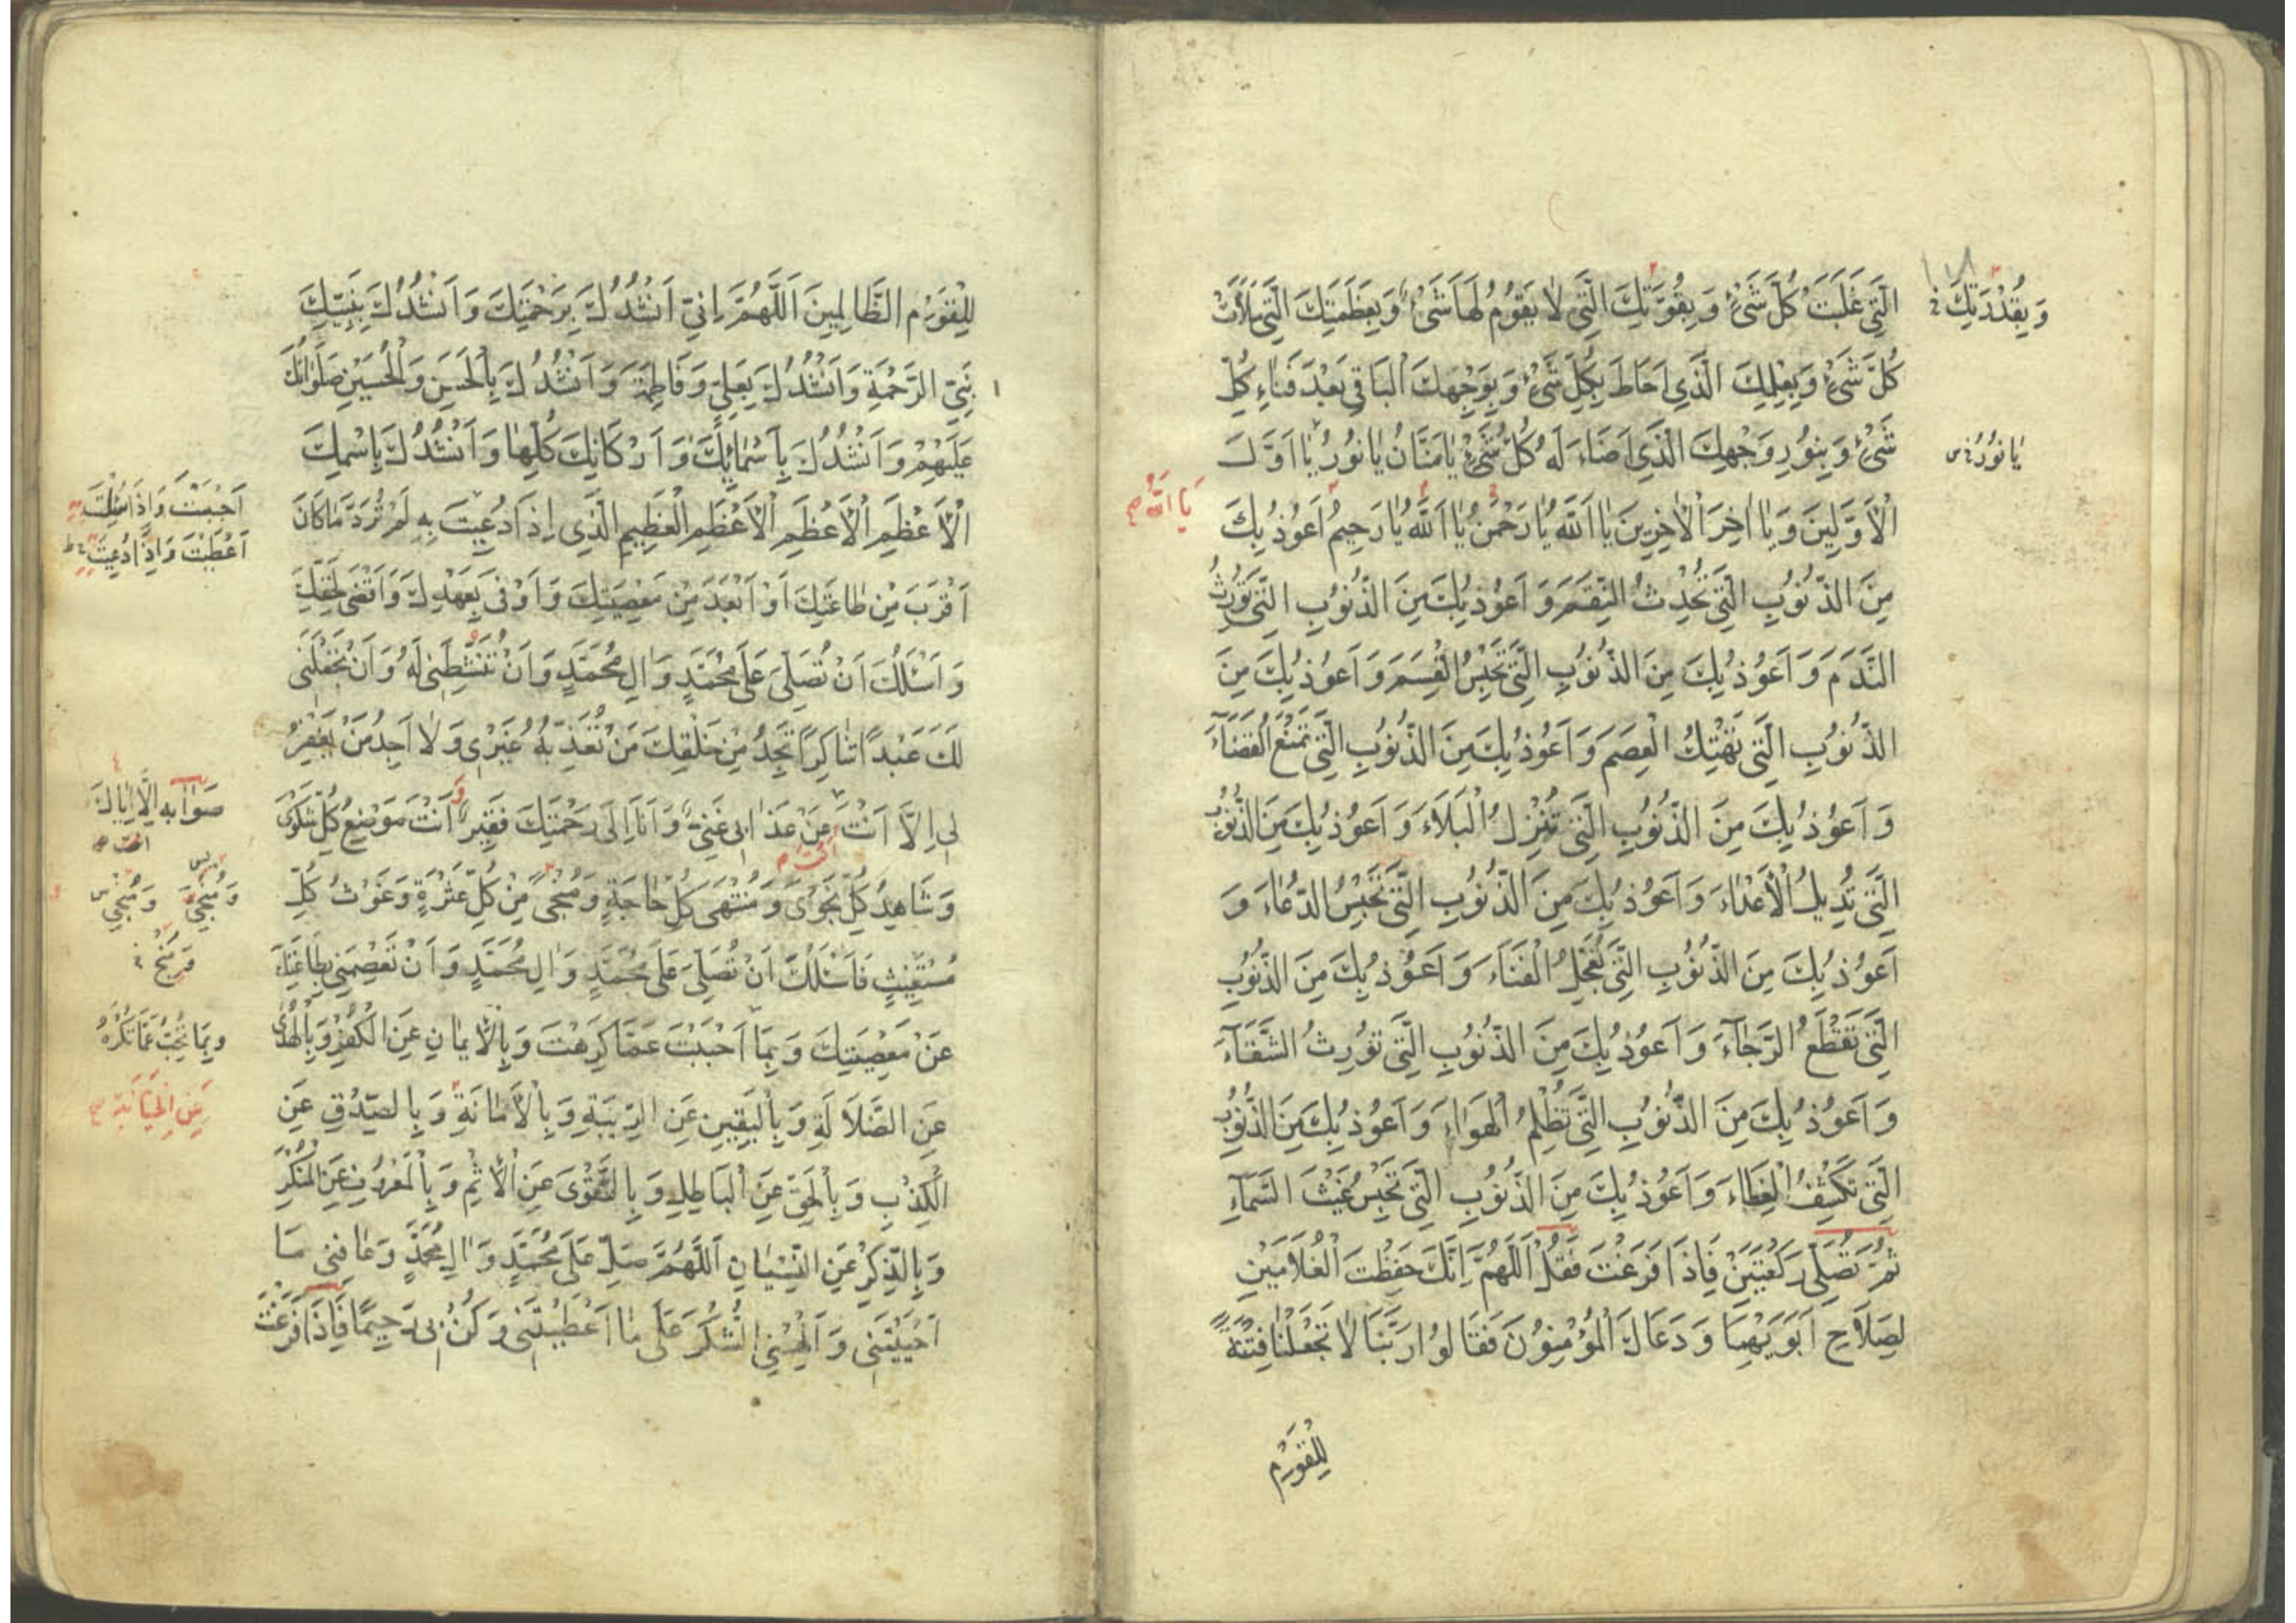 الَّتِي غَلَبَتْ كُلَّ شَيْءٍ وَبِقُوَّتِكَ الَّتِي لَا يَقُومُ لَهَا شَيْءٌ وَبِعَظَمَتِكَ الَّتِي مَلَأَتْ
وَبِقُدْرَتِكَ خ
كُلَّ شَيْءٍ وَبِعِلْمِكَ الَّذِي اَحَاطَ بِكُلِّ شَيْءٍ وَبِوَجْهِكَ الْبَاقِي بَعْدَ فَنَاءِ كُلِّ
شَيْءٍ وَبِنُورِ وَجْهِكَ الَّذِي اَضَاءَ لَهُ كُلُّ شَيْءٍ يَا مَنَّانُ يَا نُورُ يَا اَوَّلَ
يَا نُورُ خ س
الْاَوَّلِينَ وَيَا اخِرَ الْاخِرِينَ يَا اَللَّهُ يَا رَحْمٰنُ يَا اَللَّهُ يَا رَحِيمُ اَعُوذُ بِكَ
يَا اَللَّهُ
مِنَ الذُّنُوبِ الَّتِي تُحْدِثُ النِّقَمَ وَاَعُوذُ بِكَ مِنَ الذُّنُوبِ الَّتِي تُورِثُ
النَّدَمَ وَاَعُوذُ بِكَ مِنَ الذُّنُوبِ الَّتِي تَحْبِسُ الْقِسَمَ وَاَعُوذُ بِكَ مِنَ
الذُّنُوبِ الَّتِي تَهْتِكُ الْعِصَمَ وَاَعُوذُ بِكَ مِنَ الذُّنُوبِ الَّتِي تَمْنَعُ الْقَضَاءَ
وَاَعُوذُ بِكَ مِنَ الذُّنُوبِ الَّتِي تُنْزِلُ الْبَلَاءَ وَاَعُوذُ بِكَ مِنَ الذُّنُوبِ
الَّتِي تُدِيلُ الْأَعْدَاءَ وَاَعُوذُ بِكَ مِنَ الذُّنُوبِ الَّتِي تَحْبِسُ الدُّعَاءَ وَ
اَعُوذُ بِكَ مِنَ الذُّنُوبِ الَّتِي تُعَجِّلُ الْفَنَاءَ وَاَعُوذُ بِكَ مِنَ الذُّنُوبِ
الَّتِي تَقْطَعُ الرَّجَاءَ وَاَعُوذُ بِكَ مِنَ الذُّنُوبِ الَّتِي تُورِثُ الشَّقَاءَ
وَاَعُوذُ بِكَ مِنَ الذُّنُوبِ الَّتِي تُظْلِمُ الْهَوَاءَ وَاَعُوذُ بِكَ مِنَ الذُّنُوبِ
الَّتِي تَكْشِفُ الْغِطَاءَ وَاَعُوذُ بِكَ مِنَ الذُّنُوبِ الَّتِي تَحْبِسُ غَيْثَ السَّمَاءِ
ثُمَّ تُصَلِّي رَكْعَتَيْنِ فَاِذَا فَرَغْتَ فَقُلْ اَللَّهُمَّ اِنَّكَ حَفِظْتَ الْغُلَامَيْنِ
لِصَلَاحِ اَبَوَيْهِمَا وَدَعَاكَ الْمُؤْمِنُونَ فَقَالُوا رَبَّنَا لَا تَجْعَلْنَا فِتْنَةً
لِلْقَوْمِ
لِلْقَوْمِ الظَّالِمِينَ اَللَّهُمَّ اِنِّي اَنْشُدُكَ بِرَحْمَتِكَ وَاَنْشُدُكَ بِنَبِيِّكَ
نَبِيِّ الرَّحْمَةِ وَاَنْشُدُكَ بِعَلِيٍّ وَفَاطِمَةَ وَاَنْشُدُكَ بِالْحَسَنِ وَالْحُسَيْنِ صَلَوَاتُكَ
عَلَيْهِمْ وَاَنْشُدُكَ بِاَسْمَائِكَ وَاَرْكَانِكَ كُلِّهَا وَاَنْشُدُكَ بِاسْمِكَ
الْاَعْظَمِ الْاَعْظَمِ الْاَعْظَمِ الْعَظِيمِ الَّذِي اِذَا دُعِيتَ بِهِ لَمْ تَرُدَّ مَا كَانَ
اَجَبْتَ وَاِذَا سُئِلْتَ
اَعْطَيْتَ وَاِذَا دُعِيتَ
اَقْرَبَ مِنْ طَاعَتِكَ اَوْ اَبْعَدَ مِنْ مَعْصِيَتِكَ وَاَوْفَى بِعَهْدِكَ وَاَقْضَى لِحَقِّكَ
وَاَسْئَلُكَ اَنْ تُصَلِّيَ عَلَى مُحَمَّدٍ وَالِ مُحَمَّدٍ وَاَنْ تُنَشِّطَنِي لَهُ وَاَنْ تَجْعَلَنِي
لَكَ عَبْدًا شَاكِرًا تَجِدُ مِنْ خَلْقِكَ مَنْ تُعَذِّبُهُ غَيْرِي وَلَا اَجِدُ مَنْ يَغْفِرُ
لِي اِلَّا اَنْتَ عَنْ عَذَابِي غَنِيٌّ وَاَنَا اِلَى رَحْمَتِكَ فَقِيرٌ اَنْتَ مَوْضِعُ كُلِّ شَكْوَى
صَوَابه اِلَّا اِيَّاكَ
انت
اَنْتَ
وَشَاهِدُ كُلِّ نَجْوَى وَمُنْتَهَى كُلِّ حَاجَةٍ وَمُنْجِي مِنْ كُلِّ عَثْرَةٍ وَغَوْثُ كُلِّ
وَمُنْجِيَ وَمُنْجِي س
مُسْتَغِيثٍ فَاَسْئَلُكَ اَنْ تُصَلِّيَ عَلَى مُحَمَّدٍ وَالِ مُحَمَّدٍ وَاَنْ تَعْصِمَنِي بِطَاعَتِكَ
عَنْ مَعْصِيَتِكَ وَبِمَا اَحْبَبْتَ عَمَّا كَرِهْتَ وَبِالْاِيمَانِ عَنِ الْكُفْرِ وَبِالْهُدَى
وَبِمَا تُحِبُّ عَمَّا تَكْرَهُ
عَنِ الضَّلَالَةِ وَبِالْيَقِينِ عَنِ الرِّيبَةِ وَبِالْاَمَانَةِ وَبِالصِّدْقِ عَنِ
عَنِ الْخِيَانَةِ
الْكِذْبِ وَبِالْحَقِّ عَنِ الْبَاطِلِ وَبِالتَّقْوَى عَنِ الْاِثْمِ وَبِالْمَعْرُوفِ عَنِ الْمُنْكَرِ
وَبِالذِّكْرِ عَنِ النِّسْيَانِ اَللَّهُمَّ صَلِّ عَلَى مُحَمَّدٍ وَالِ مُحَمَّدٍ وَعَافِنِي مَا
اَحْيَيْتَنِي وَاَلْهِمْنِي الشُّكْرَ عَلَى مَا اَعْطَيْتَنِي وَكُنْ بِي رَحِيمًا فَاِذَا فَرَغْتَ